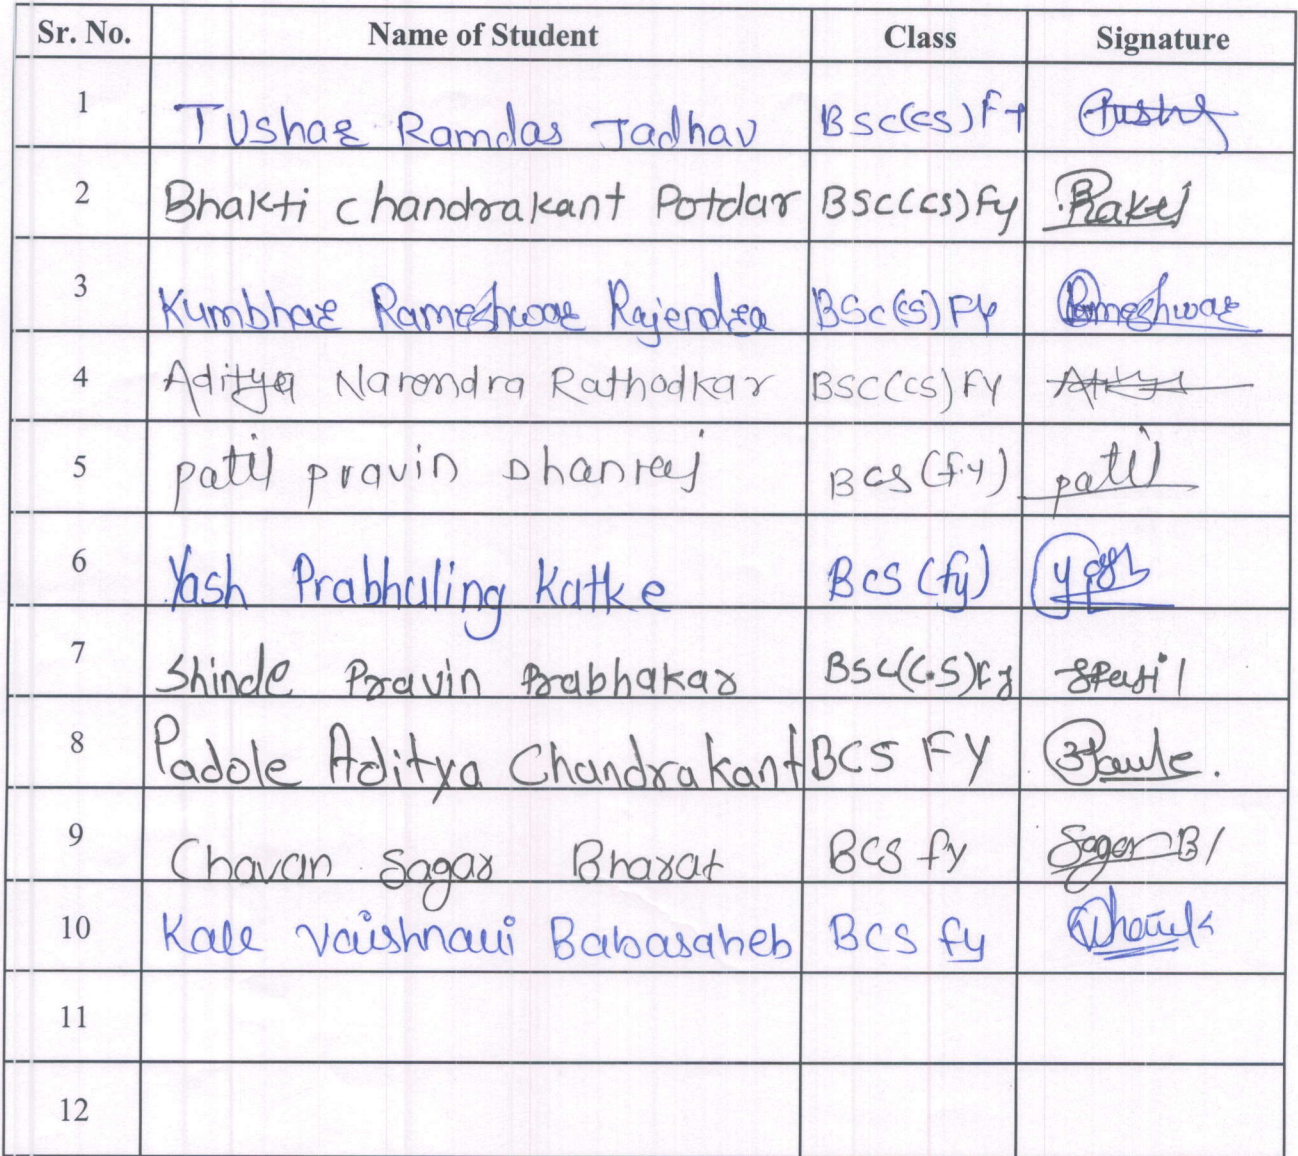 Sr. No. Name of Student Class Signature
1 Tushar Ramdas Jadhav BSc(cs) Fy
2 Bhakti chandrakant Potdar BSc(cs) Fy Bhakti
3 Kumbhar Rameshwar Rajendra BSc(cs) Fy Rameshwar
4 Aditya Narendra Rathodkar BSC(CS) Fy
5 patil pravin Dhanraj BCS (fy) patil
6 Yash Prabhuling Katke BCS (fy) Yash
7 Shinde Pravin Prabhakar BSC(C.S) Fy
8 Padole Aditya Chandrakant BCS FY
9 Chavan Sagar Bharat BCS fy Sagar B
10 Kale Vaishnavi Babasaheb BCS fy
11
12